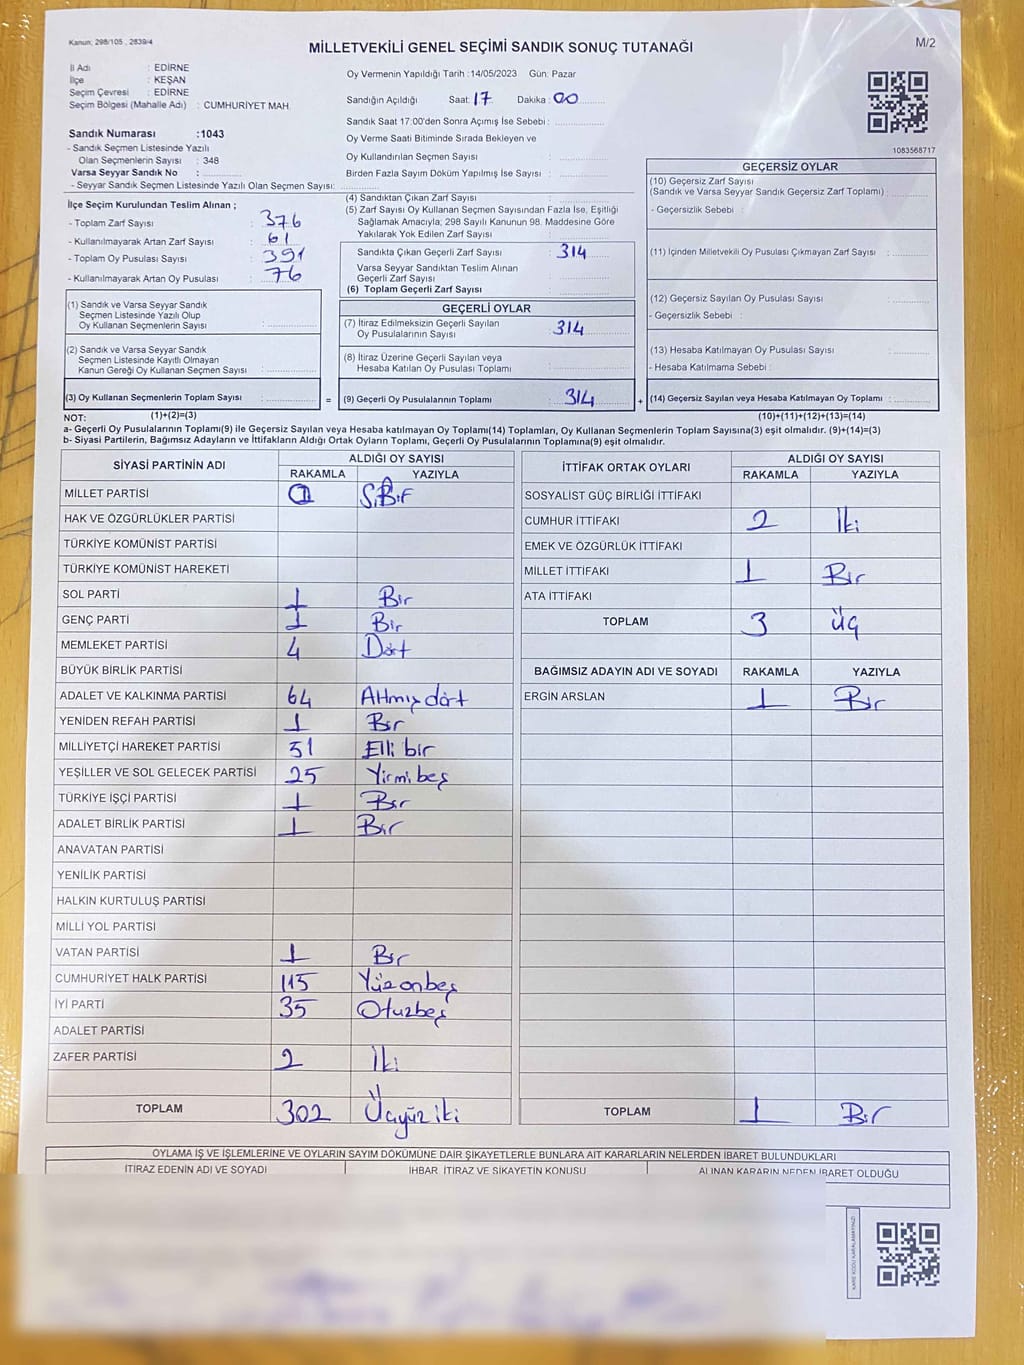 Kanun: 298/105 , 2839/4
M/2
MİLLETVEKİLİ GENEL SEÇİMİ SANDIK SONUÇ TUTANAĞI
İl Adı : EDİRNE
İlçe : KEŞAN
Seçim Çevresi : EDİRNE
Seçim Bölgesi (Mahalle Adı) : CUMHURİYET MAH.
Sandık Numarası :1043
- Sandık Seçmen Listesinde Yazılı
Olan Seçmenlerin Sayısı : 348
Varsa Seyyar Sandık No :
- Seyyar Sandık Seçmen Listesinde Yazılı Olan Seçmen Sayısı:
Oy Vermenin Yapıldığı Tarih :14/05/2023 Gün: Pazar
Sandığın Açıldığı Saat: 17 Dakika : 00
Sandık Saat 17:00'den Sonra Açımış İse Sebebi :
Oy Verme Saati Bitiminde Sırada Bekleyen ve
Oy Kullandırılan Seçmen Sayısı :
Birden Fazla Sayım Döküm Yapılmış İse Sayısı :
1083568717
İlçe Seçim Kurulundan Teslim Alınan ;
- Toplam Zarf Sayısı : 376
- Kullanılmayarak Artan Zarf Sayısı : 61
- Toplam Oy Pusulası Sayısı : 391
- Kullanılmayarak Artan Oy Pusulası : 76
(1) Sandık ve Varsa Seyyar Sandık
Seçmen Listesinde Yazılı Olup
Oy Kullanan Seçmenlerin Sayısı :
(2) Sandık ve Varsa Seyyar Sandık
Seçmen Listesinde Kayıtlı Olmayan
Kanun Gereği Oy Kullanan Seçmen Sayısı :
(3) Oy Kullanan Seçmenlerin Toplam Sayısı :
=
(4) Sandıktan Çıkan Zarf Sayısı :
(5) Zarf Sayısı Oy Kullanan Seçmen Sayısından Fazla İse, Eşitliği
Sağlamak Amacıyla; 298 Sayılı Kanunun 98. Maddesine Göre
Yakılarak Yok Edilen Zarf Sayısı :
Sandıkta Çıkan Geçerli Zarf Sayısı : 314
Varsa Seyyar Sandıktan Teslim Alınan
Geçerli Zarf Sayısı :
(6) Toplam Geçerli Zarf Sayısı :
GEÇERLİ OYLAR
(7) İtiraz Edilmeksizin Geçerli Sayılan
Oy Pusulalarının Sayısı : 314
(8) İtiraz Üzerine Geçerli Sayılan veya
Hesaba Katılan Oy Pusulası Toplamı :
(9) Geçerli Oy Pusulalarının Toplamı : 314
+
GEÇERSİZ OYLAR
(10) Geçersiz Zarf Sayısı
(Sandık ve Varsa Seyyar Sandık Geçersiz Zarf Toplamı) :
- Geçersizlik Sebebi :
(11) İçinden Milletvekili Oy Pusulası Çıkmayan Zarf Sayısı :
(12) Geçersiz Sayılan Oy Pusulası Sayısı :
- Geçersizlik Sebebi :
(13) Hesaba Katılmayan Oy Pusulası Sayısı :
- Hesaba Katılmama Sebebi :
(14) Geçersiz Sayılan veya Hesaba Katılmayan Oy Toplamı :
NOT: (1)+(2)=(3) (10)+(11)+(12)+(13)=(14)
a- Geçerli Oy Pusulalarının Toplamı(9) ile Geçersiz Sayılan veya Hesaba katılmayan Oy Toplamı(14) Toplamları, Oy Kullanan Seçmenlerin Toplam Sayısına(3) eşit olmalıdır. (9)+(14)=(3)
b- Siyasi Partilerin, Bağımsız Adayların ve İttifakların Aldığı Ortak Oyların Toplamı, Geçerli Oy Pusulalarının Toplamına(9) eşit olmalıdır.
SİYASİ PARTİNİN ADI ALDIĞI OY SAYISI
RAKAMLA YAZIYLA
MİLLET PARTİSİ
HAK VE ÖZGÜRLÜKLER PARTİSİ
TÜRKİYE KOMÜNİST PARTİSİ
TÜRKİYE KOMÜNİST HAREKETİ
SOL PARTİ 1 Bir
GENÇ PARTİ 1 Bir
MEMLEKET PARTİSİ 4 Dört
BÜYÜK BİRLİK PARTİSİ
ADALET VE KALKINMA PARTİSİ 64 Altmışdört
YENİDEN REFAH PARTİSİ 1 Bir
MİLLİYETÇİ HAREKET PARTİSİ 51 Elli bir
YEŞİLLER VE SOL GELECEK PARTİSİ 25 Yirmi beş
TÜRKİYE İŞÇİ PARTİSİ 1 Bir
ADALET BİRLİK PARTİSİ 1 Bir
ANAVATAN PARTİSİ
YENİLİK PARTİSİ
HALKIN KURTULUŞ PARTİSİ
MİLLİ YOL PARTİSİ
VATAN PARTİSİ 1 Bir
CUMHURİYET HALK PARTİSİ 115 Yüzonbeş
İYİ PARTİ 35 Otuzbeş
ADALET PARTİSİ
ZAFER PARTİSİ 2 İki
TOPLAM 302 Üçyüz iki
İTTİFAK ORTAK OYLARI ALDIĞI OY SAYISI
RAKAMLA YAZIYLA
SOSYALİST GÜÇ BİRLİĞİ İTTİFAKI
CUMHUR İTTİFAKI 2 İki
EMEK VE ÖZGÜRLÜK İTTİFAKI
MİLLET İTTİFAKI 1 Bir
ATA İTTİFAKI
TOPLAM 3 Üç
BAĞIMSIZ ADAYIN ADI VE SOYADI RAKAMLA YAZIYLA
ERGİN ARSLAN 1 Bir
TOPLAM 1 Bir
OYLAMA İŞ VE İŞLEMLERİNE VE OYLARIN SAYIM DÖKÜMÜNE DAİR ŞİKAYETLERLE BUNLARA AİT KARARLARIN NELERDEN İBARET BULUNDUKLARI
İTİRAZ EDENİN ADI VE SOYADI İHBAR, İTİRAZ VE ŞİKAYETİN KONUSU ALINAN KARARIN NEDEN İBARET OLDUĞU
KARE KODU KARALAMAYINIZ!